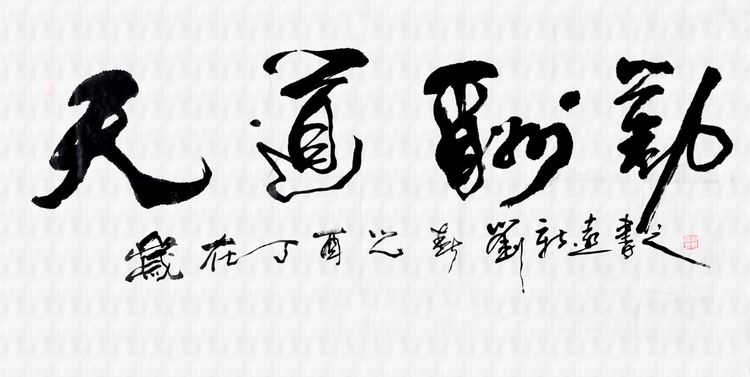 天道酬勤
歲在丁酉之春劉書之